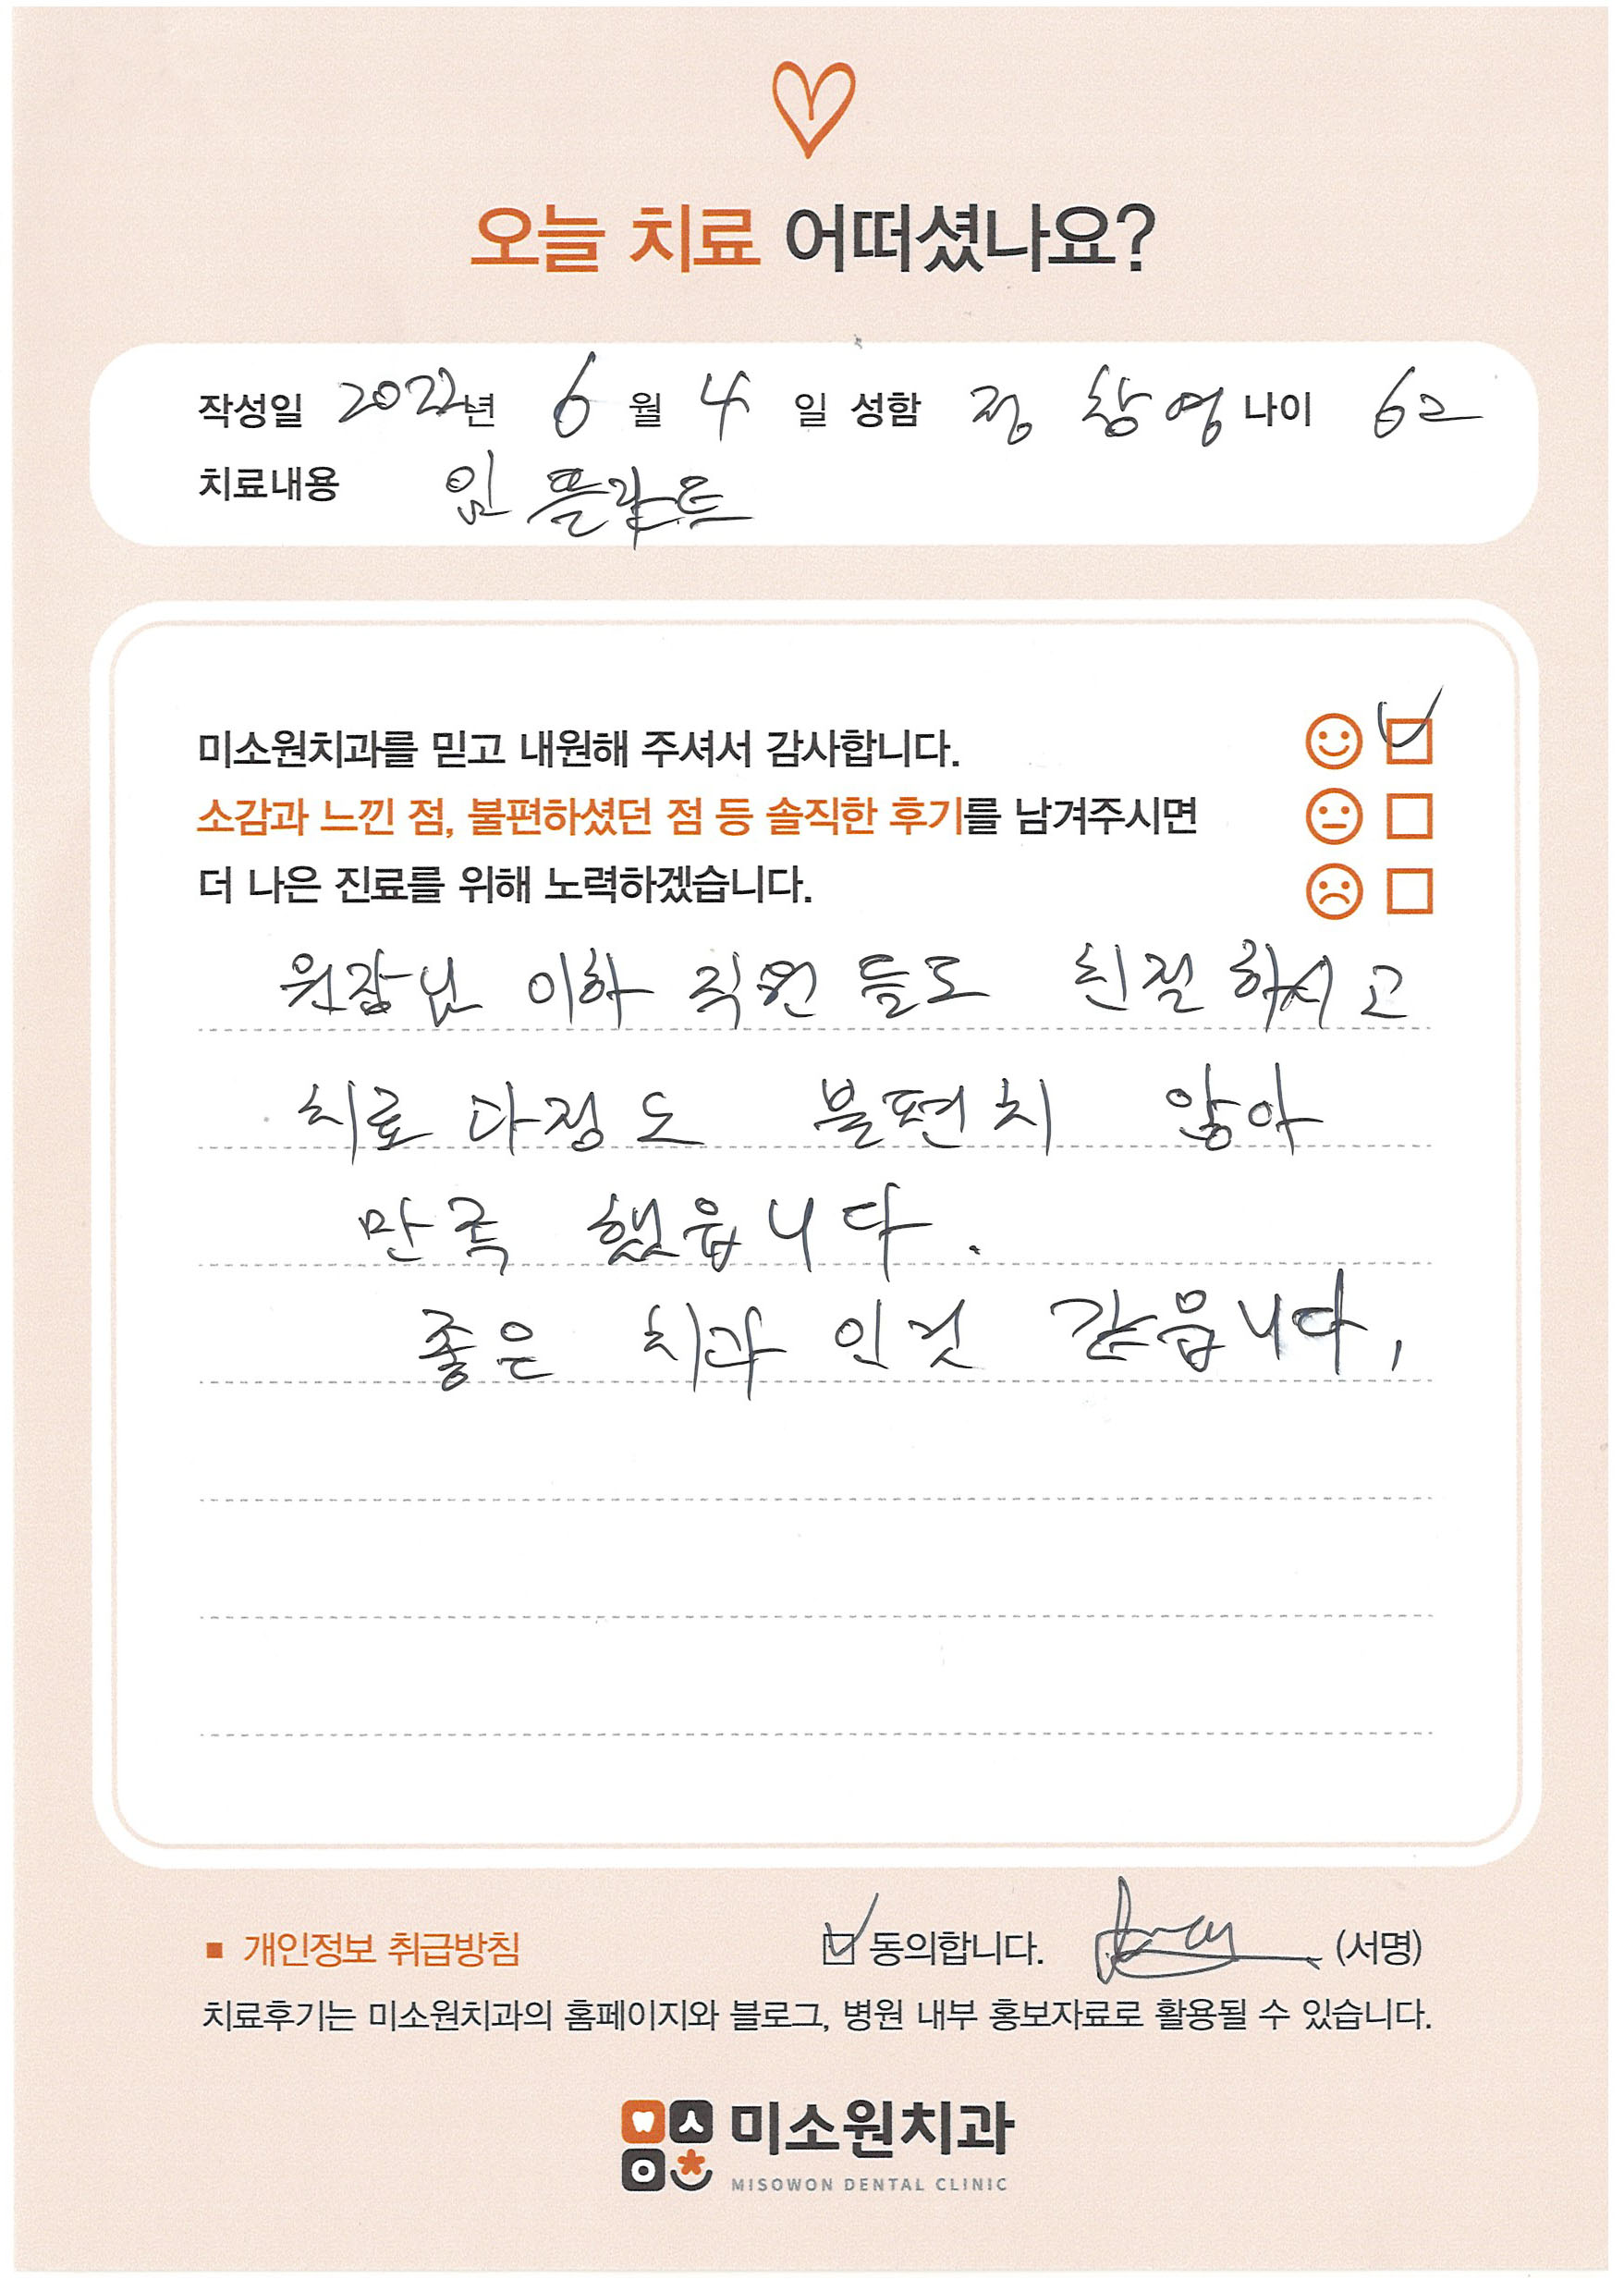 오늘 치료 어떠셨나요?
작성일 2022년 6월 4일 성함 정창영 나이 62
치료내용 임플란트
미소원치과를 믿고 내원해 주셔서 감사합니다.
소감과 느낀 점, 불편하셨던 점 등 솔직한 후기를 남겨주시면
더 나은 진료를 위해 노력하겠습니다.
원장님 이하 직원들도 친절하시고
치료 과정도 불편치 않아
만족 했읍니다.
좋은 치과 인것 같읍니다,
■ 개인정보 취급방침 동의합니다. (서명)
치료후기는 미소원치과의 홈페이지와 블로그, 병원 내부 홍보자료로 활용될 수 있습니다.
미소원치과
MISOWON DENTAL CLINIC